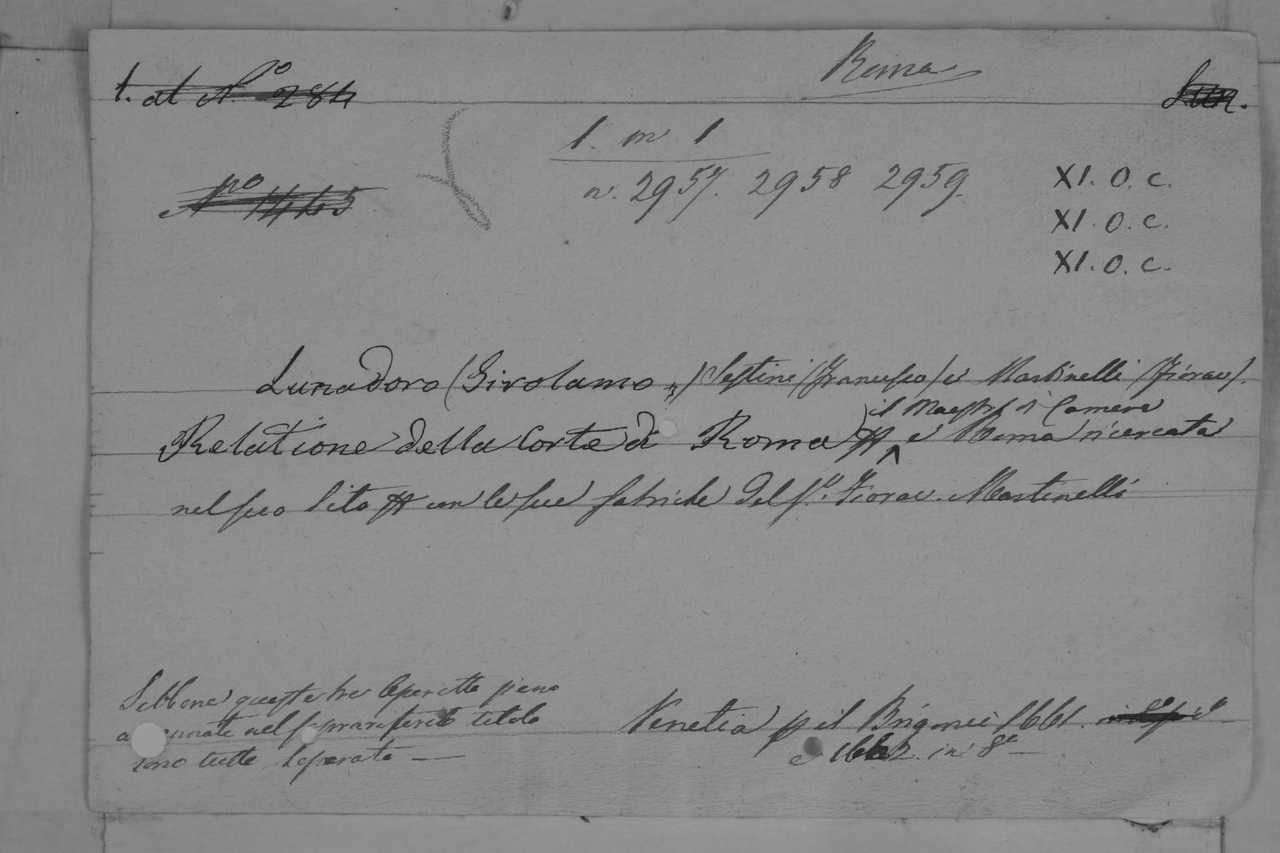 Roma
t. at N.º 284
Lun.
1. m 1
Nº 1445
n. 2957. 2958 2959.
XI. O. C.
XI. O. C.
XI. O. C.
Lunadoro (Girolamo,,) Sestini (Francesco) e Martinelli (Fiorav).
il Maestro di Camera
Relatione della Corte di Roma e Roma ricercata
nel suo Sito con le sue fabriche del Sr. Fiorav. Martinelli
Sebbene queste tre Operette sieno
accennate nel sopra riferito titolo
sono tutte separate —
Venetia p il Brigonci 1661.
e 1662. in 8º —